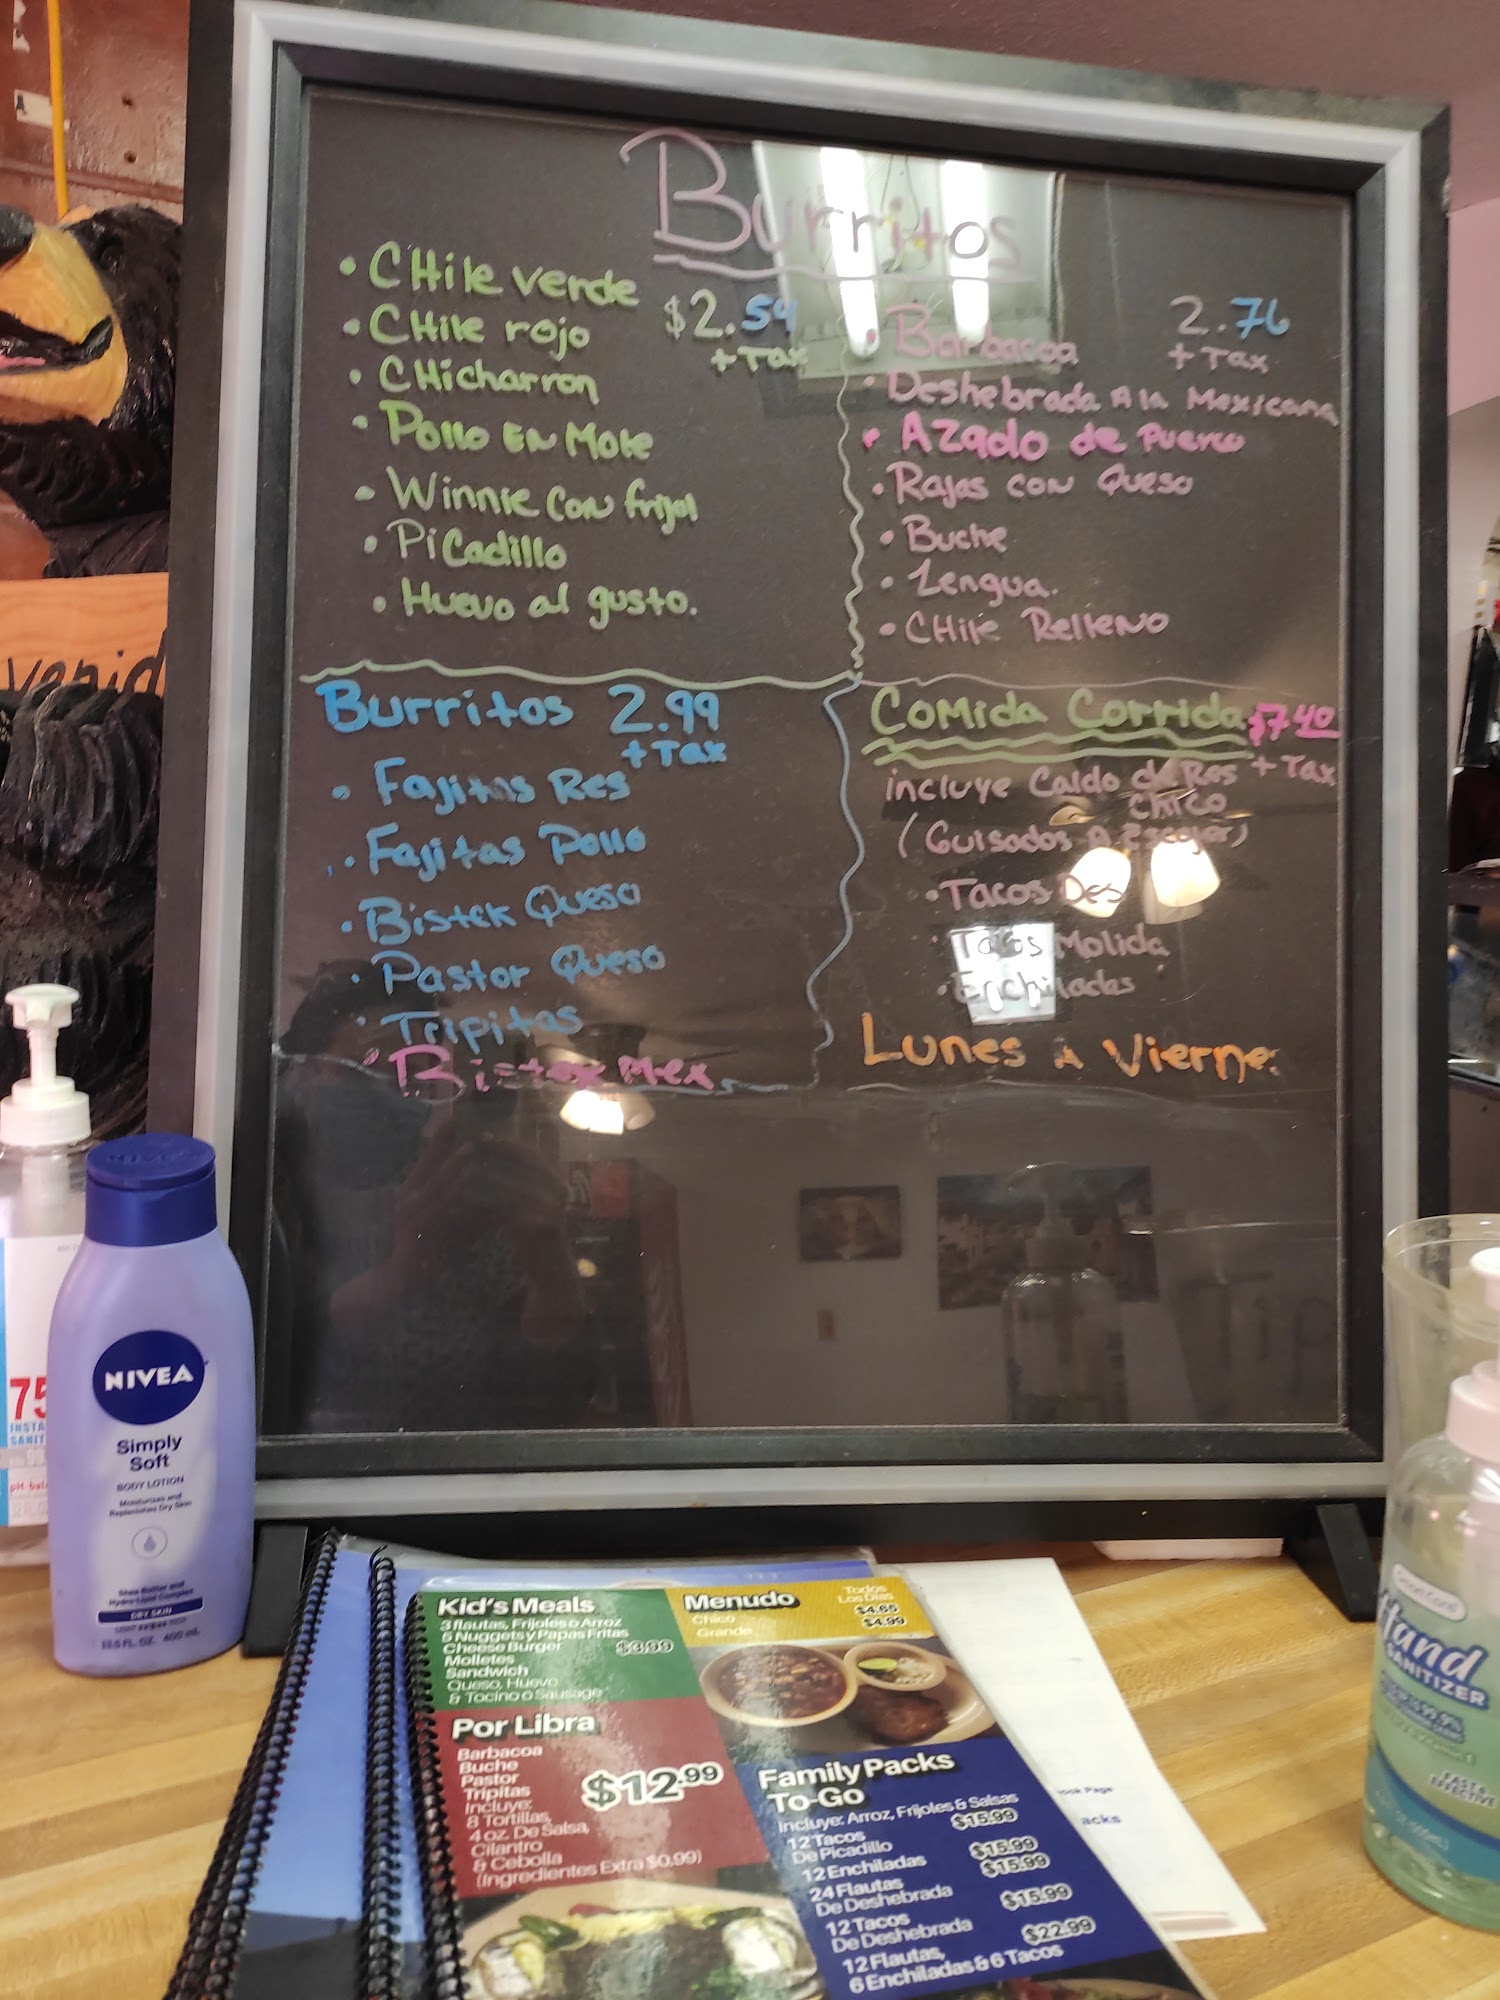 Burritos
• CHile verde
$2.54
+ Tax
• CHile rojo
• CHicharron
• Pollo EN Mole
• Winnie con frijol
• Picadillo
• Huevo al gusto.
2.76
+ Tax
• Barbacoa
• Deshebrada A la Mexicana
• Azado de Puerco
• Rajas con Queso
• Buche
• Lengua.
• CHile Relleno
Burritos 2.99
+ Tax
• Fajitas Res
• Fajitas Pollo
• Bistek Queso
• Pastor Queso
• Tripitas
• Bistek Mex
Comida Corrida $7.40
+ Tax
incluye Caldo de Res
CHICO
(Guisados A Escojer)
• Tacos Des
• Tacos Molida
• Enchiladas
Lunes A Vierne
NIVEA
Simply
Soft
BODY LOTION
Moisturizes and
Replenishes Dry Skin
Shea Butter and
DRY SKIN
13.5 FL. OZ. 400 mL
75
INSTA
SANIT
pH-bal
Kid's Meals
3 flautas, Frijoles o Arroz
5 Nuggets y Papas Fritas
Cheese Burger
$3.99
Molletes
Sandwich
Queso, Huevo
& Tocino o Sausage
Menudo
Todos
Los Dias
Chico
$4.65
Grande
$4.99
Por Libra
Barbacoa
Buche
Pastor
Tripitas
$12.99
Incluye:
8 Tortillas,
4 oz. De Salsa,
Cilantro
& Cebolla
(Ingredientes Extra $0.99)
Family Packs
To-Go
Incluye: Arroz, Frijoles & Salsas
12 Tacos
De Picadillo
$15.99
12 Enchiladas
$15.99
24 Flautas
De Deshebrada
$15.99
12 Tacos
De Deshebrada
$15.99
12 Flautas,
6 Enchiladas & 6 Tacos
$22.99
ook Page
acks
Hand
SANITIZER
FAST
EFFECTIVE
venid